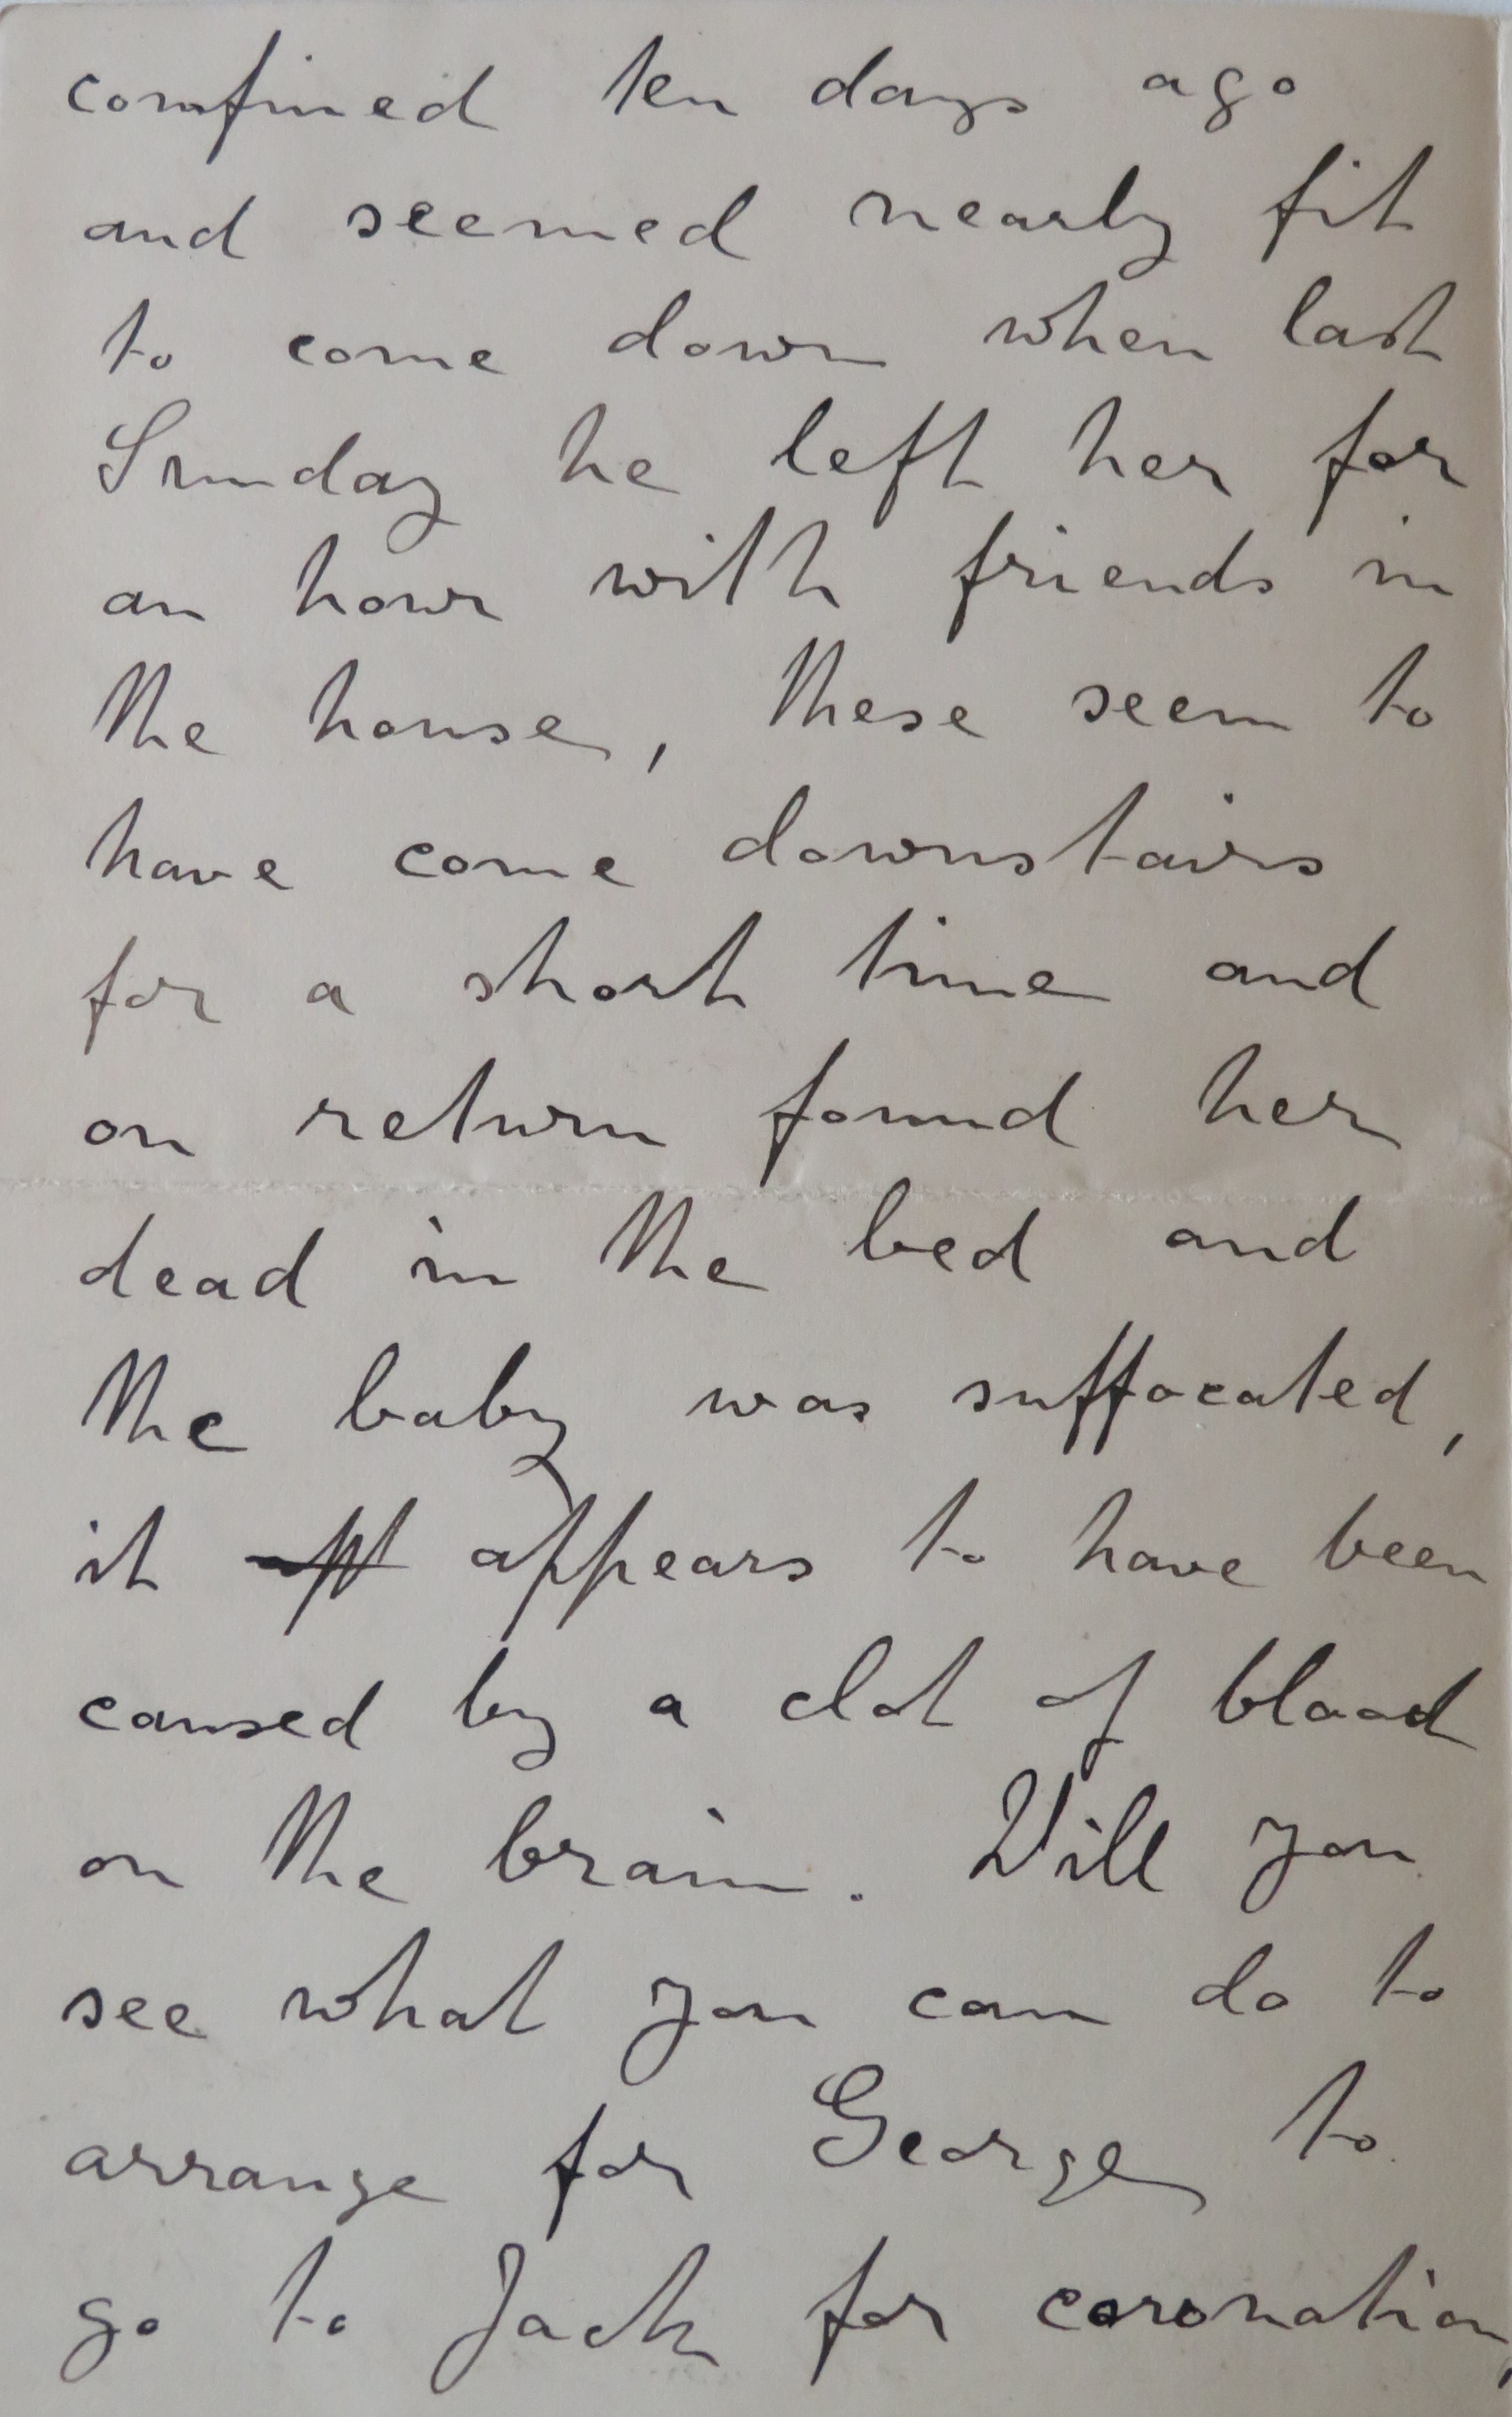 confined ten days ago
and seemed nearly fit
to come down when last
Sunday he left her for
an hour with friends in
the house, these seem to
have come downstairs
for a short time and
on return found her
dead in the bed and
the baby was suffocated,
it appears to have been
caused by a clot of blood
on the brain. Will you
see what you can do to
arrange for George to
go to Jack for coronation,